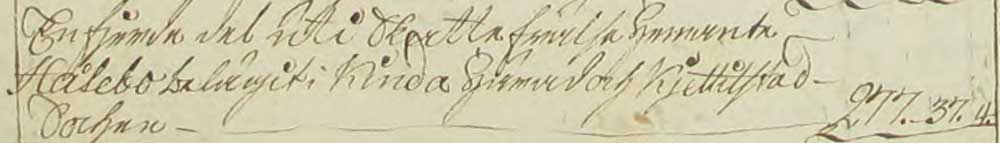 En fjerde del uti Skatte frälse hemmante
Hälebo belägit i Kinda Härad och Kjettilstad
Sochen — 277. 37. 4.